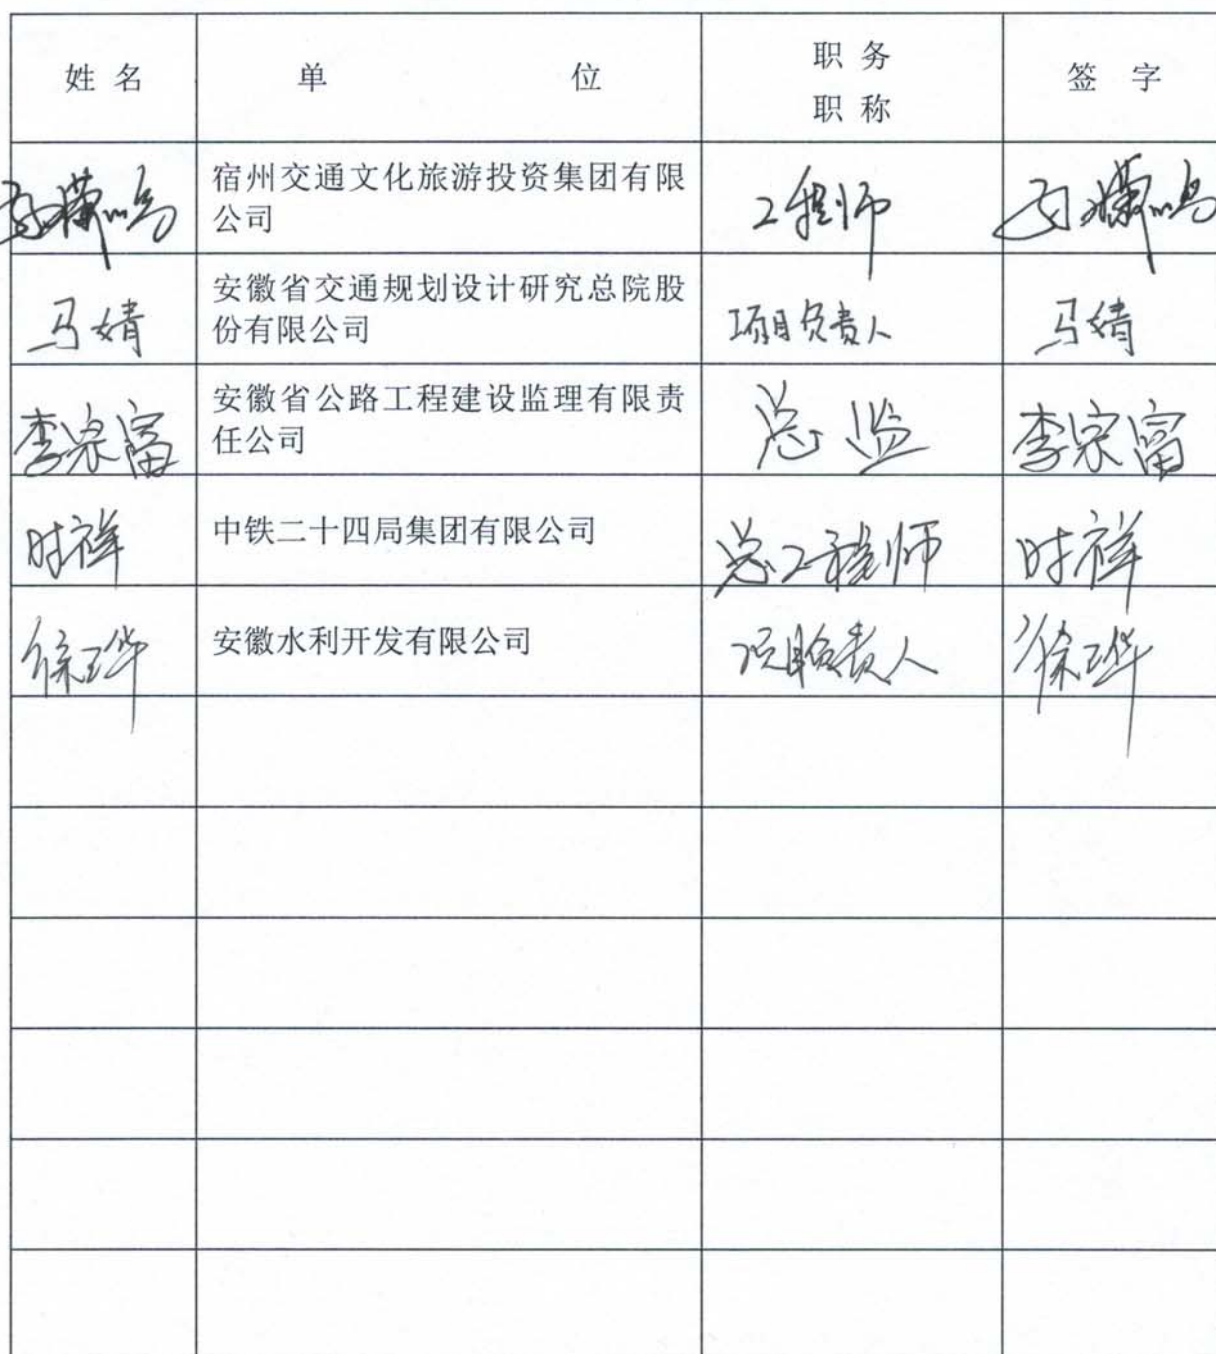 姓 名 单 位 职 务 签 字
职 称
宿州交通文化旅游投资集团有限
公司 工程师
马婧 安徽省交通规划设计研究总院股
份有限公司 项目负责人 马婧
李宗富 安徽省公路工程建设监理有限责
任公司 总监 李宗富
时祥 中铁二十四局集团有限公司 总工程师 时祥
徐玉华 安徽水利开发有限公司 项目负责人